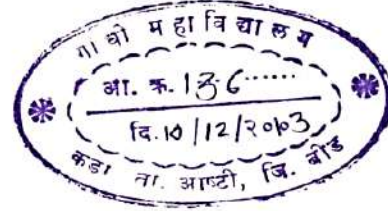 गांधी महाविद्यालय
आ. क्र. 136......
दि. 10/12/2003
कडा ता. आष्टी, जि. बीड